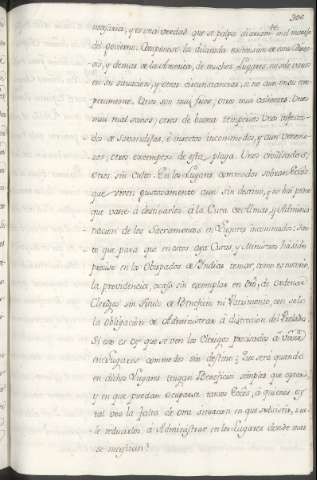 300
necesaria, y es una verdad que se palpa diariam.te en el manejo
del govierno. Componese la dilatada extension de esta Dioce-
sis, y demas de la America, de muchos Lugares, no solo varios
en su situacion, y otras circunstancias, si no aun en su tem-
peramento. Unos son muy frios, otros muy calientes. Unos
muy mal sanos, otros de buena templanza. Unos infesta-
dos de Savandijas, é insectos incomodos, y aun veneno-
sos, otros exemptos de esta plaga. Unos civilisados,
otros sin culto. En los Lugares comodos sobran
que viven gustosamente aun sin destino, y no hai para
que valerse á destinarlos á la Cura de Almas, y Adminis-
tracion de los Sacramentos en Lugares incomodos: Tan-
to que para que en estos aya Curas, y Ministros ha sido
preciso en los Obispados de Indias tomar, como es notorio,
la providencia, acaso sin exemplar en de ordenar
Clerigos sin titulo de Beneficio ni Patrimonio, con solo
la obligacion de Administrar á discrecion del Prelado.
Si con es que se ven los Clerigos precisados á
en Lugares comodos sin destino; Que será quando
en dichos Lugares tengan Beneficios simples que
y en que puedan ocuparse tantos á quienes es
tal vez la falta de otra situacion en que subsistir, sue-
le reducirlos á Administrar en los Lugares donde mas
se necesitan?